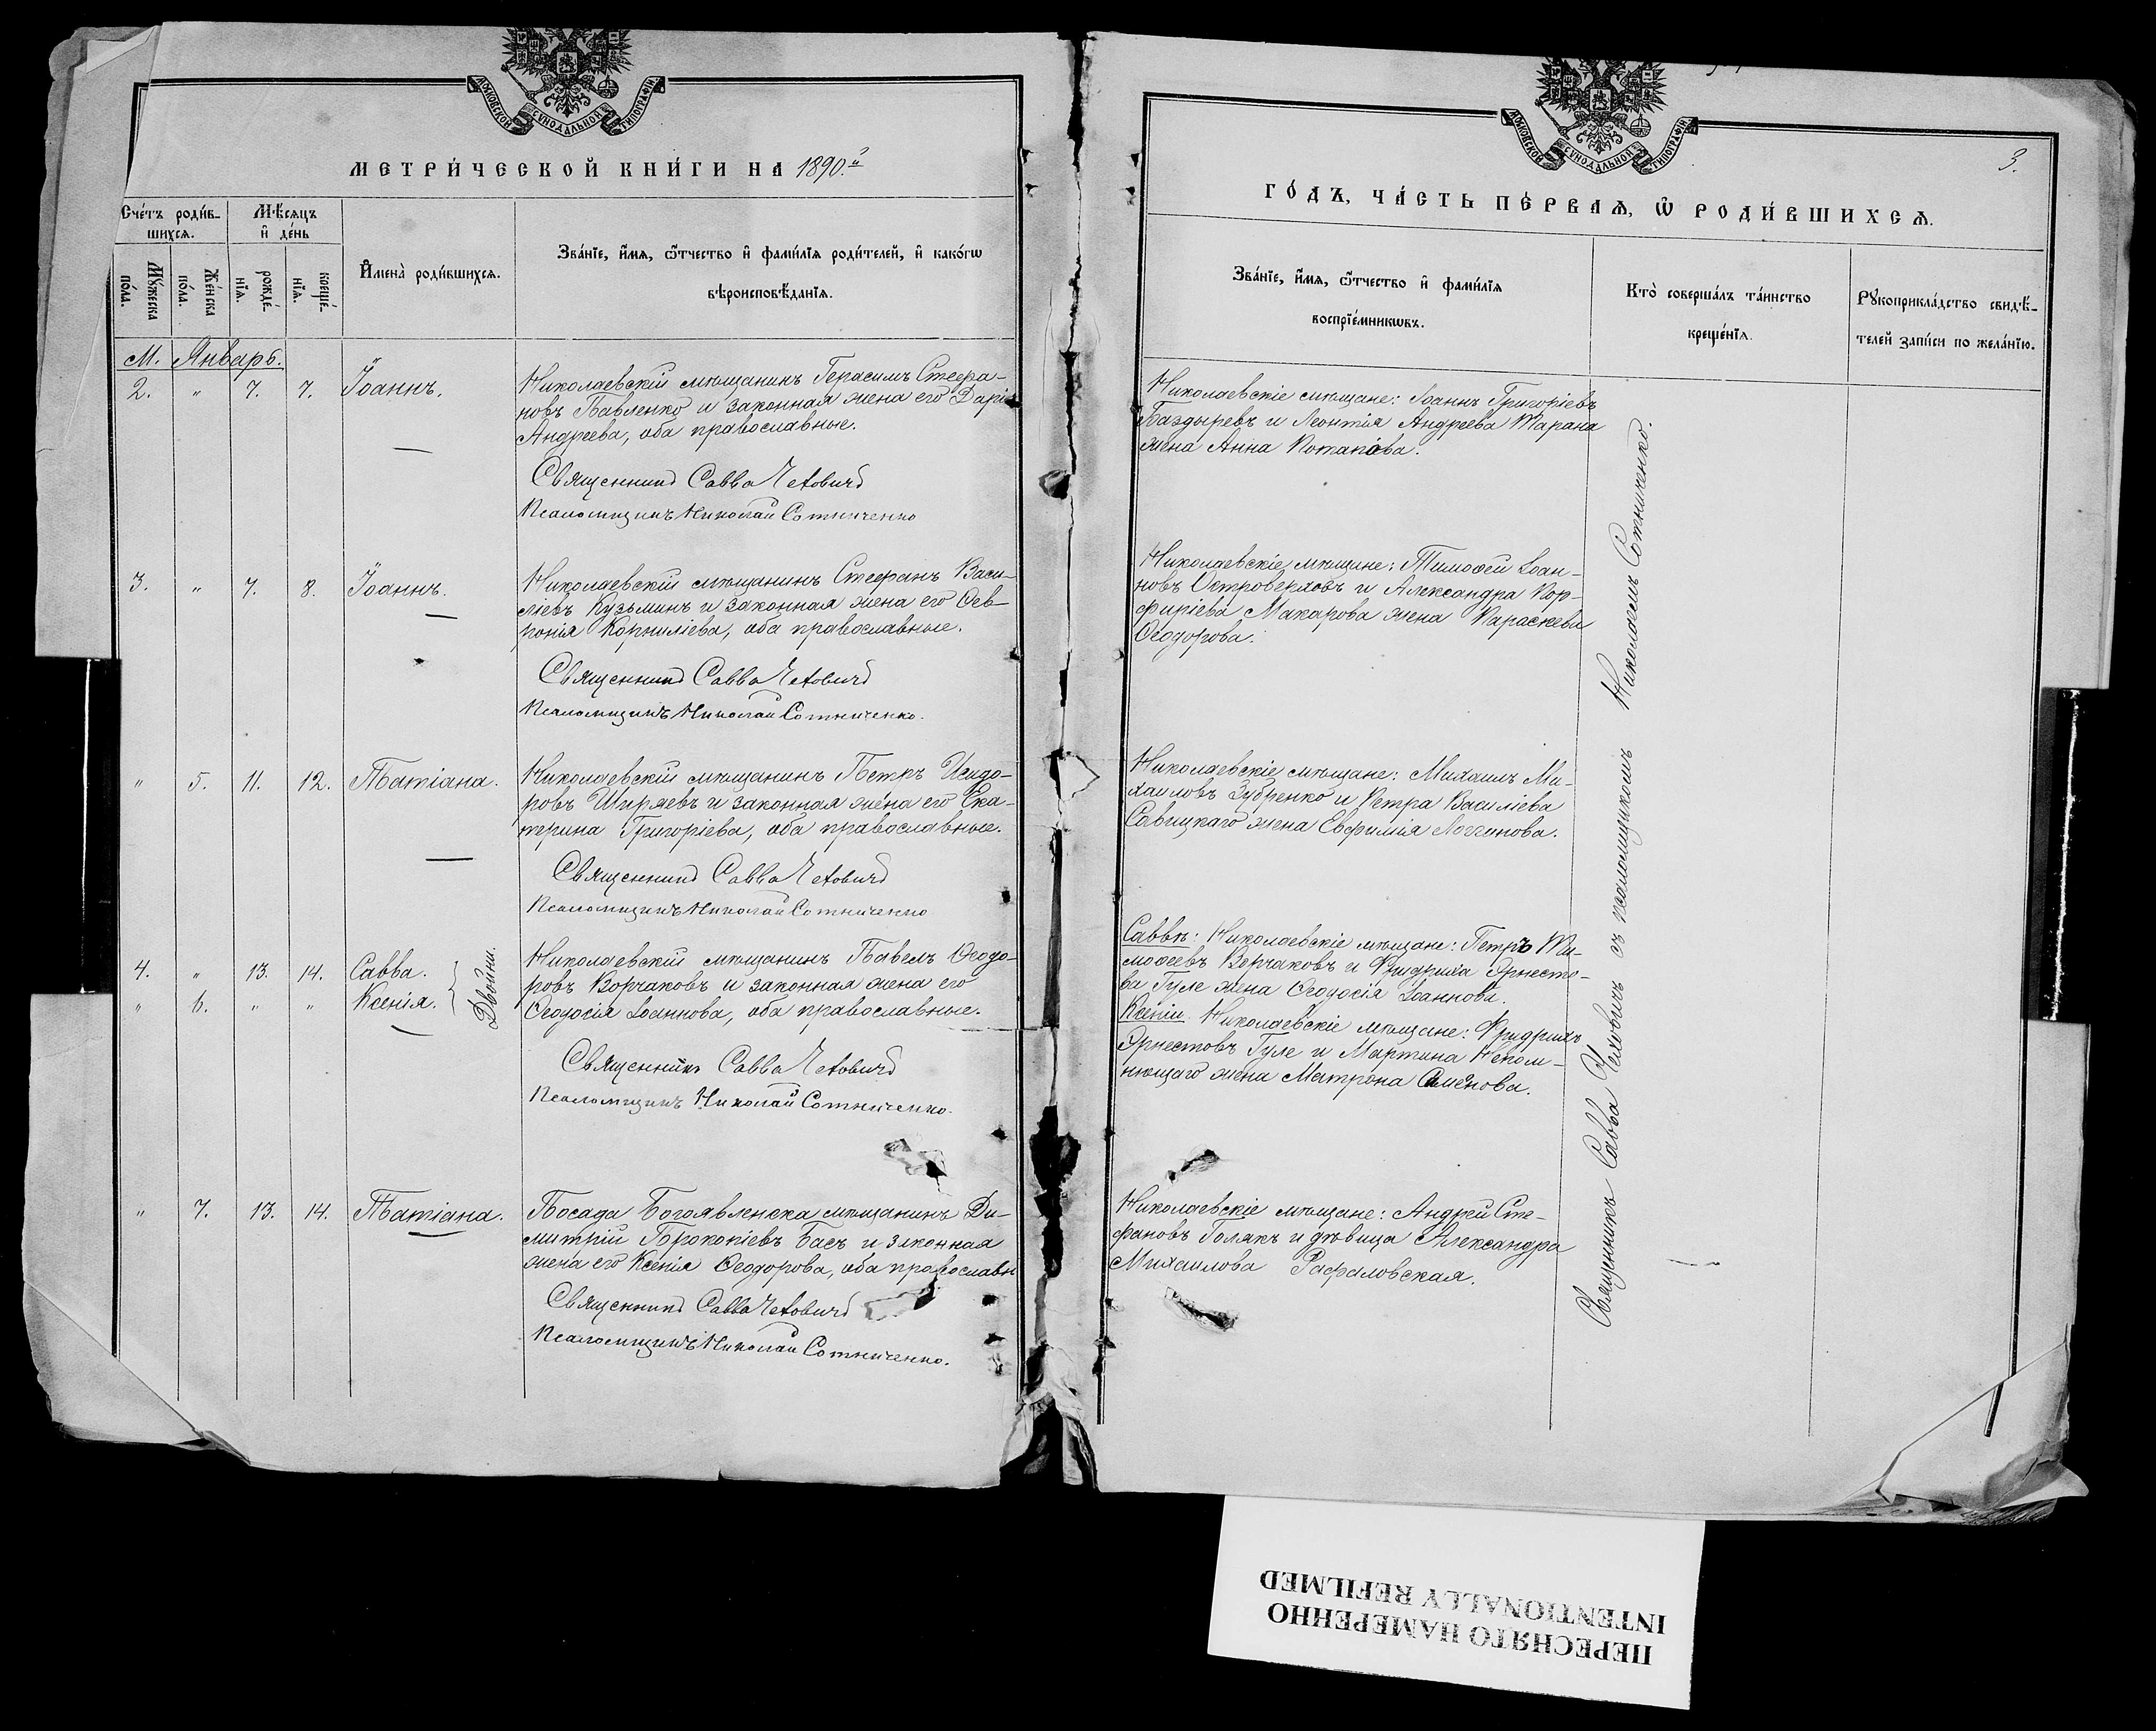 МОСКОВСКОЙ СУНОДАЛЬНОЙ ТИПОГРАФІИ
МЕТРИ́ЧЕСКОЙ КНИ́ГИ НА 1890.й
Сче́тъ роди́в-
шихсѧ.
Мѣ́сѧцъ
и҆ де́нь
Мꙋ́жеска
по́ла.
Же́нска
по́ла.
рожде́-
нїѧ.
креще́-
нїѧ.
И҆мена̀ роди́вшихсѧ.
Зва́нїе, и҆́мѧ, ѻ҆́тчество и҆ фами́лїѧ роди́телей, и҆ како́гѡ
вѣроисповѣ́данїѧ.
М. Январь.
2. " 7. 7. Іоаннъ.
Николаевскій мѣщанинъ Герасимъ Стефа-
новъ Павленко и законная жена его Дарія
Андреева, оба православные.
Священникъ Савва Чехович
Псаломщикъ Николай Сотниченко
3. " 7. 8. Іоаннъ.
Николаевскій мѣщанинъ Стефанъ Васи-
ліевъ Кузьминъ и законная жена его Фев-
ронія Корниліева, оба православные.
Священникъ Савва Чехович
Псаломщикъ Николай Сотниченко.
" 5. 11. 12. Татіана.
Николаевскій мѣщанинъ Петръ Исидо-
ровъ Ширяевъ и законная жена его Ека-
терина Григоріева, оба православные.
Священникъ Савва Чехович
Псаломщикъ Николай Сотниченко
4. " 13. 14. Савва.
" 6. " " Ксенія.
Двойни.
Николаевскій мѣщанинъ Павелъ Ѳеодо-
ровъ Корчаковъ и законная жена его
Ѳеодосія Іоаннова, оба православные.
Священникъ Савва Чехович
Псаломщикъ Николай Сотниченко.
" 7. 13. 14. Татіана.
Посада Богоявленска мѣщанинъ Ди-
митрій Прокопіевъ Басъ и законная
жена его Ксенія Ѳеодорова, оба православн
Священникъ Савва Чехович
Псаломщикъ Николай Сотниченко.
МОСКОВСКОЙ СУНОДАЛЬНОЙ ТИПОГРАФІИ
3.
ГО́ДЪ, ЧА́СТЬ ПЕ́РВАѦ, Ѡ҆ РОДИ́ВШИХСѦ.
Зва́нїе, и҆́мѧ, ѻ҆́тчество и҆ фами́лїѧ
воспрїе́мникѡвъ.
Кто̀ соверша́лъ та́инство
креще́нїѧ.
Рꙋкоприкла́дство свидѣ́-
телей за́писи по жела́нїю.
Николаевскіе мѣщане: Іоаннъ Григоріевъ
Баздыревъ и Леонтія Андреева Тарана
жена Анна Потапова.
Николаевскіе мѣщане: Тимофей Іоан-
новъ Островерховъ и Александра Пор-
фиріева Макарова жена Параскева
Ѳеодорова.
Николаевскіе мѣщане: Михаилъ Ми-
хаиловъ Зубренко и Петра Василіева
Савицкаго жена Евфимія Логгинова.
Саввѣ: Николаевскіе мѣщане: Петръ Ти-
моѳеевъ Корчаковъ и Фридриха Эрнесто-
ва Гуле жена Ѳеодосія Іоаннова.
Ксеніи Николаевскіе мѣщане: Фридрихъ
Эрнестовъ Гуле и Мартина Непом-
нющаго жена Матрона Семенова.
Николаевскіе мѣщане: Андрей Сте-
фановъ Голякъ и дѣвица Александра
Михаилова Рафаловская.
Священникъ Савва Чеховичъ съ псаломщикомъ Николаемъ Сотниченко.
ПЕРЕСНЯТО НАМЕРЕННО
INTENTIONALLY REFILMED